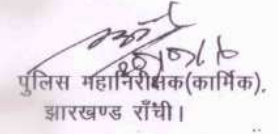 पुलिस महानिरीक्षक(कार्मिक),
झारखण्ड राँची।